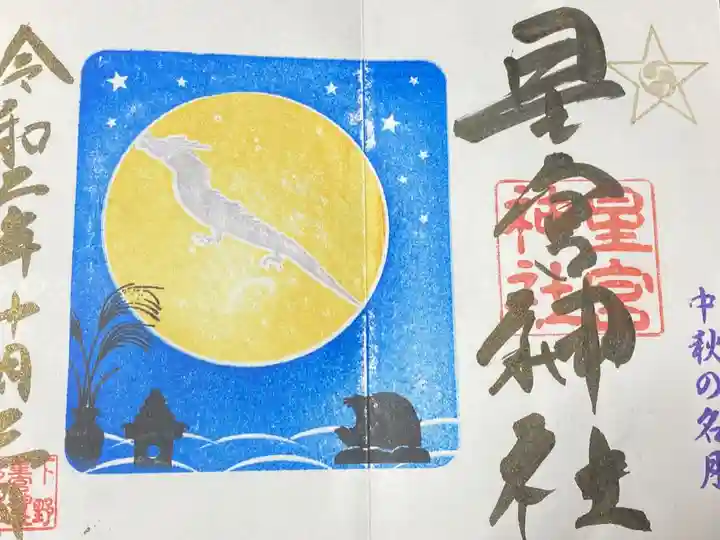 星宮神社
星宮
神社
中秋の名月
令和二年十月二
下野